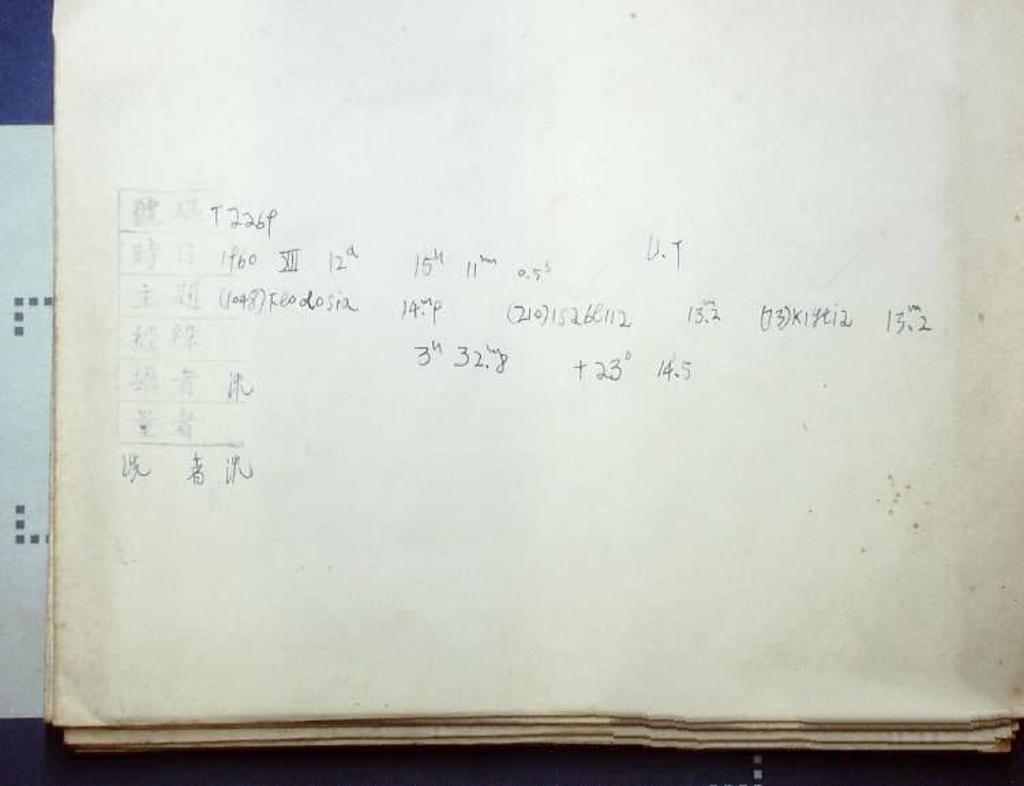 號碼 T2269
時日 1960 XII 12d 15h 11m 0.5s U.T
主題 (1048)Feodosia 14m.9 (210)Isabella 13m.2 (73)Klytia 13m.2
經緯 3h 32m.8 +23° 14.5
攝者 沈
量者
洗者 沈